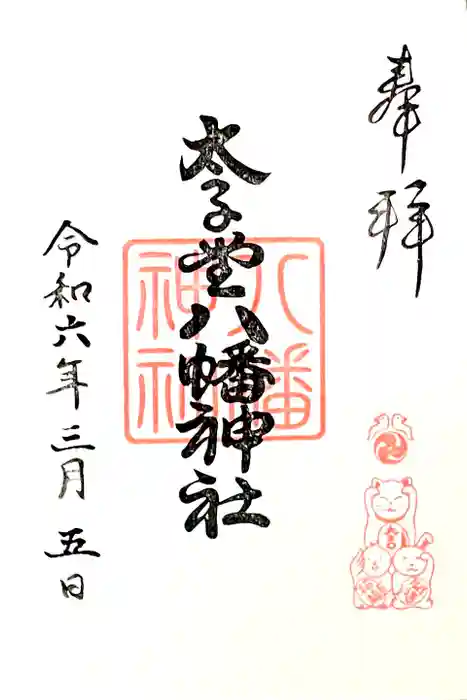 奉拝
太子堂八幡神社
八幡
神社
令和六年三月五日